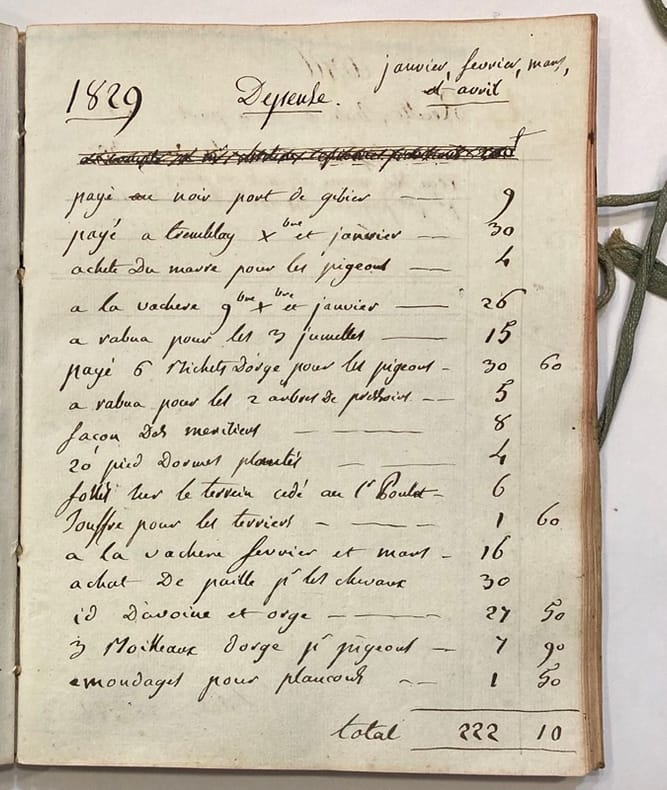 janvier, fevrier, mars,
1829 Depense. et avril
payé au noir port de gibier — 9
payé a tremblay Xbre et janvier — 30
acheté du marre pour les pigeons — 4
a la vachere 9bre Xbre et janvier — 26
a rabua pour les 3 jumelles — 15
payé 6 Michets D'orge pour les pigeons - 30 60
a rabua pour les 2 arbres de pressoirs - - 5
façon Des — 8
20 pied Dormes plantés - — 4
fossés sur le terrein cedé au Sr Poulet - 6
Souffre pour les terriers - — 1 60
a la vachere fevrier et mars - 16
achat De paille pr les chevaux 30
id D'avoine et orge — 27 50
3 Moitteaux dorge pr pigeons — 7 90
emondages pour - - 1 50
total 222 10